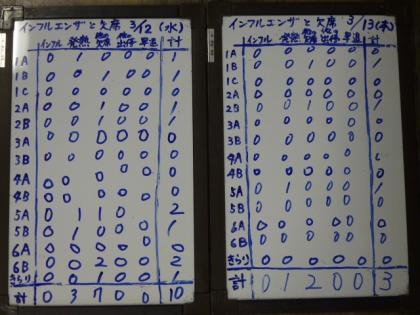 インフルエンザと欠席 3/12 (水)
インフル 発熱 他の欠席 他の出停 早退 計
1A 0 1 0 0 0 1
1B 0 0 1 0 0 1
1C 0 0 0 0 0 0
2A 0 0 1 0 0 1
2B 0 0 1 0 0 1
3A 0 0 0 0 0 0
3B 0 0 0 0 0 0
4A 0 0 0 0 0 0
4B 0 0 0 0 0 0
5A 0 1 1 0 2
5B 0 1 0 0 0 1
6A 0 0 0 0 0 0
6B 0 0 2 0 0 2
きらり 0 0 1 0 0 1
計 0 3 7 0 0 10
インフルエンザと欠席 3/13(木)
インフル 発熱 他の欠席 他の出停 早退 計
1A 0 0 0 0 0 0
1B 0 0 1 0 0 1
1C 0 0 0 0 0 0
2A 0 0 0 0 0 0
2B 0 0 1 0 0 1
3A 0 0 0 0 0 0
3B 0 0 0 0 0 0
4A 0 0 0 0 0 0
4B 0 0 0 0 0 0
5A 0 1 0 0 0 1
5B 0 0 0 0 0 0
6A 0 0 0 0 0 0
6B 0 0 0 0 0 0
きらり 0 0 0 0 0 0
計 0 1 2 0 0 3